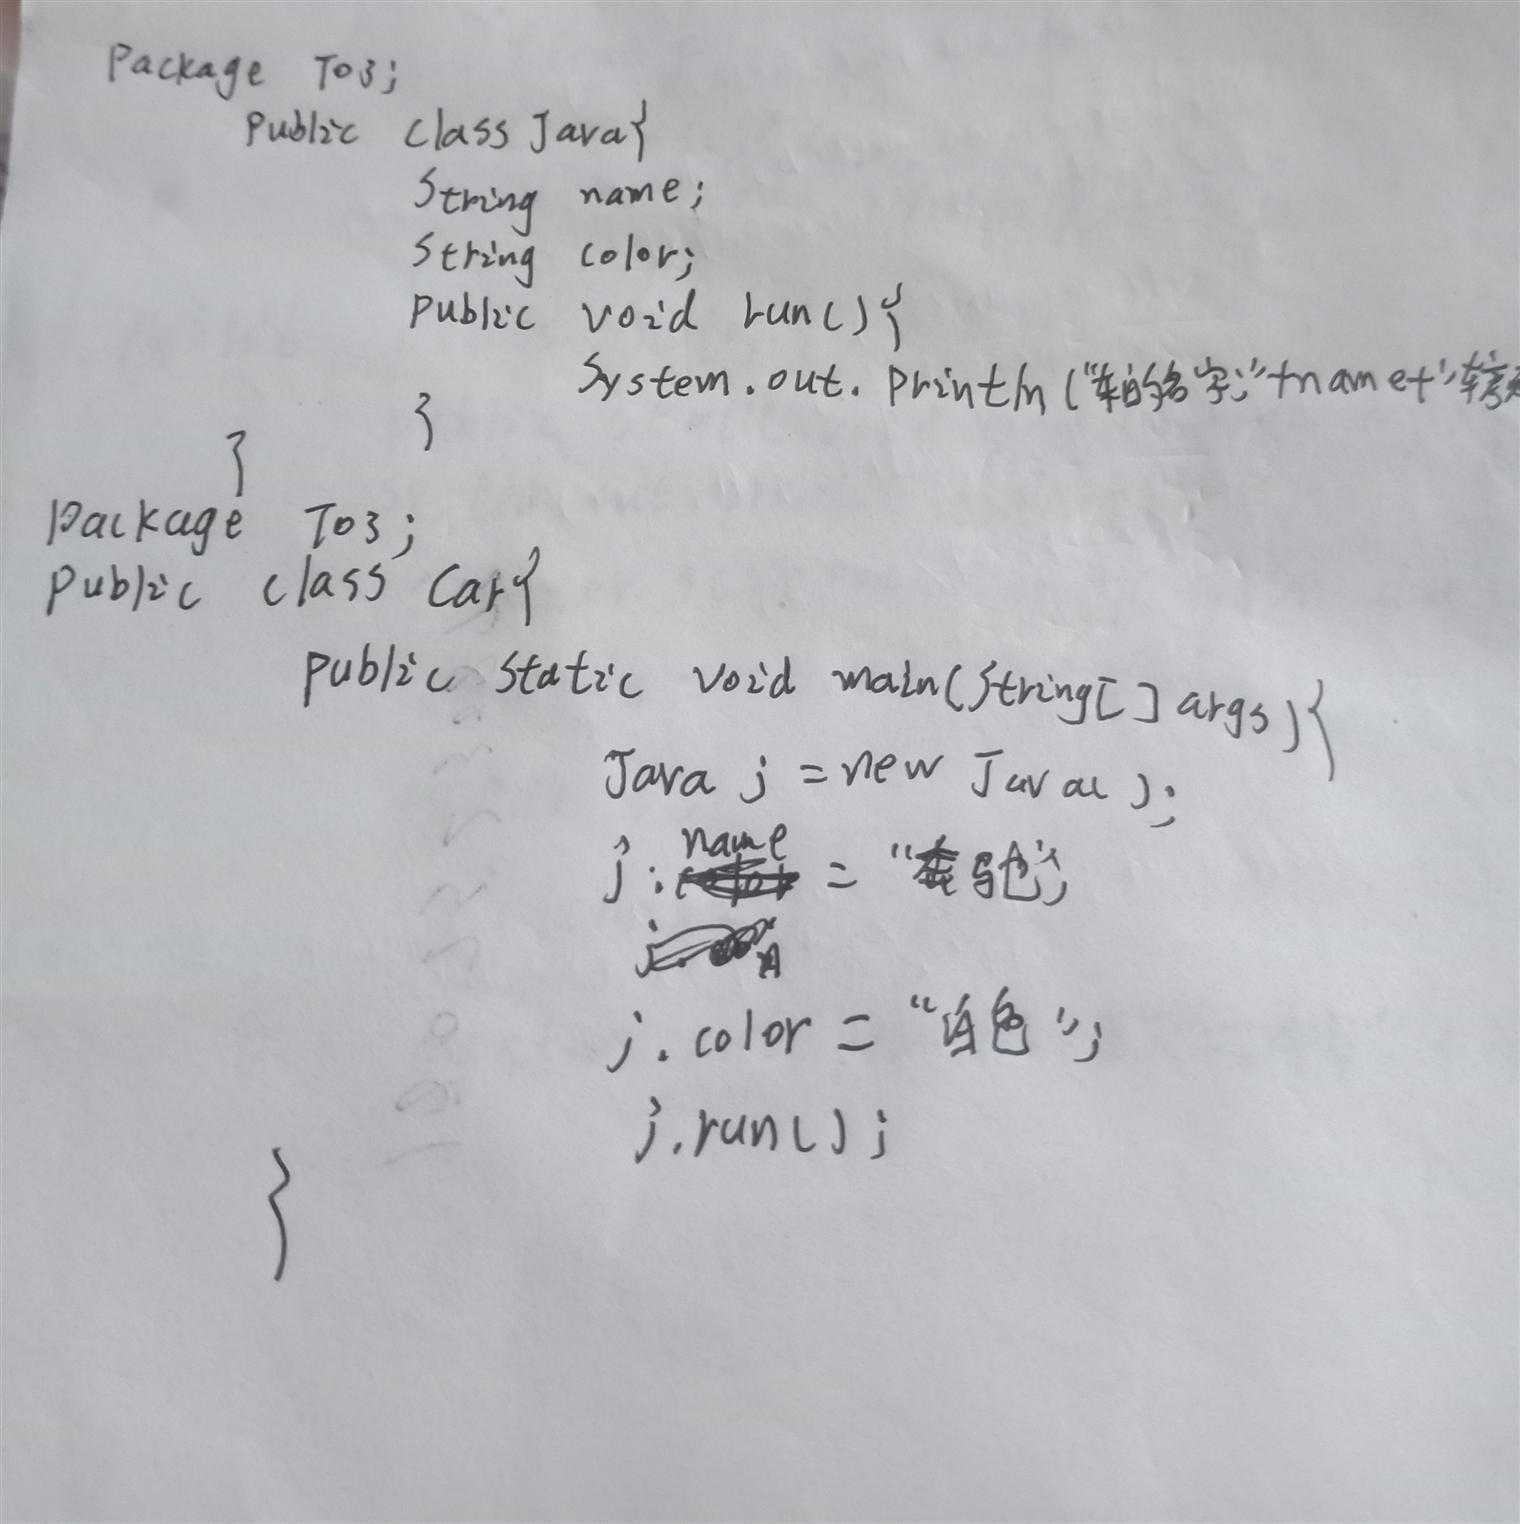 Package T03;
Public class Java{
String name;
String color;
Public void run(){
System.out.Println("车的名字:"+name+"
}
}
Package T03;
Public class Car{
public static void main(String[] args){
Java j = new Java();
j.name = "奔驰";
j.color = "白色";
j.run();
}